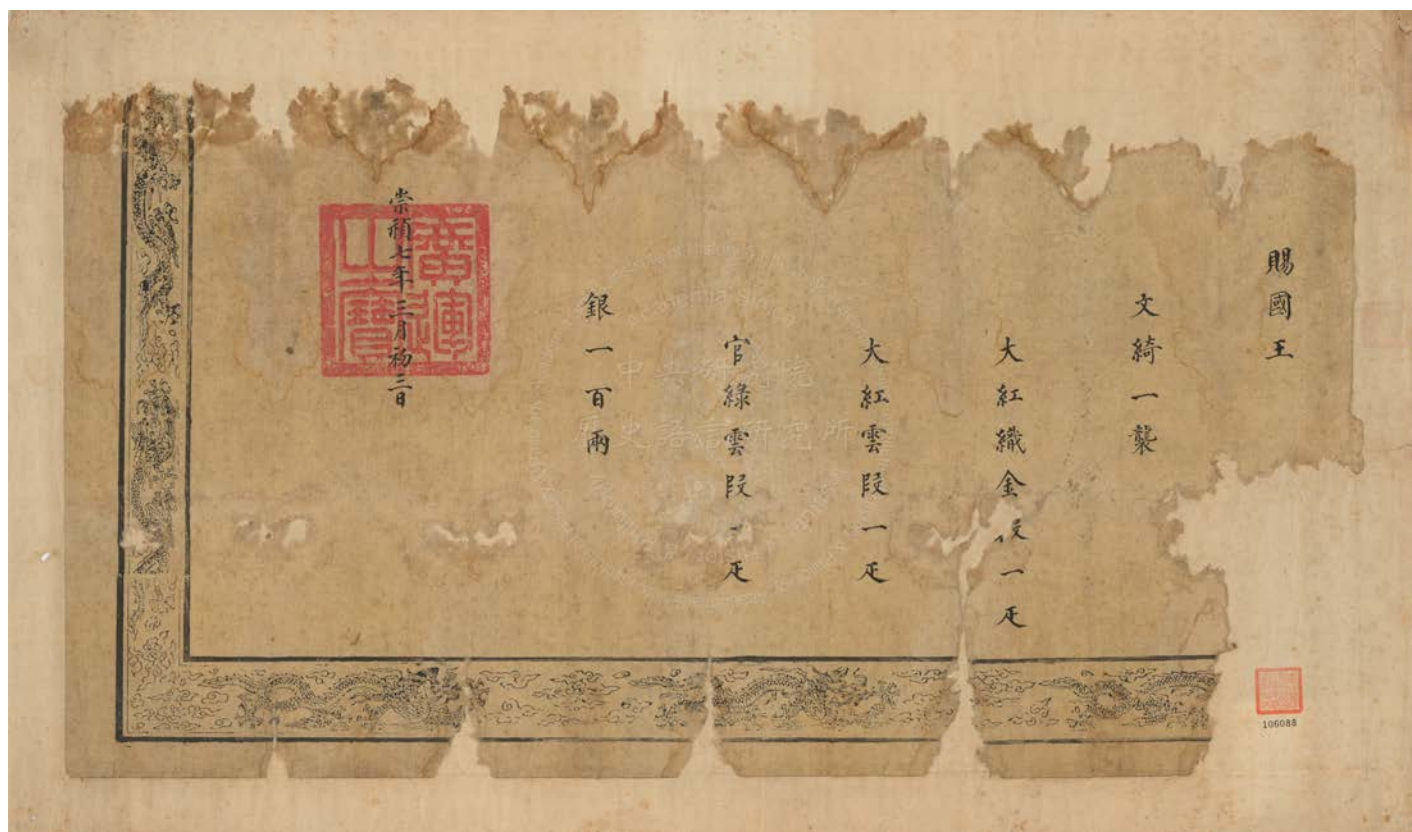 賜國王
文綺一襲
大紅織金段一疋
大紅雲段一疋
官綠雲段一疋
銀一百兩
崇禎七年三月初三日
廣運之寶
中央研究院
歷史語言研究所
106088